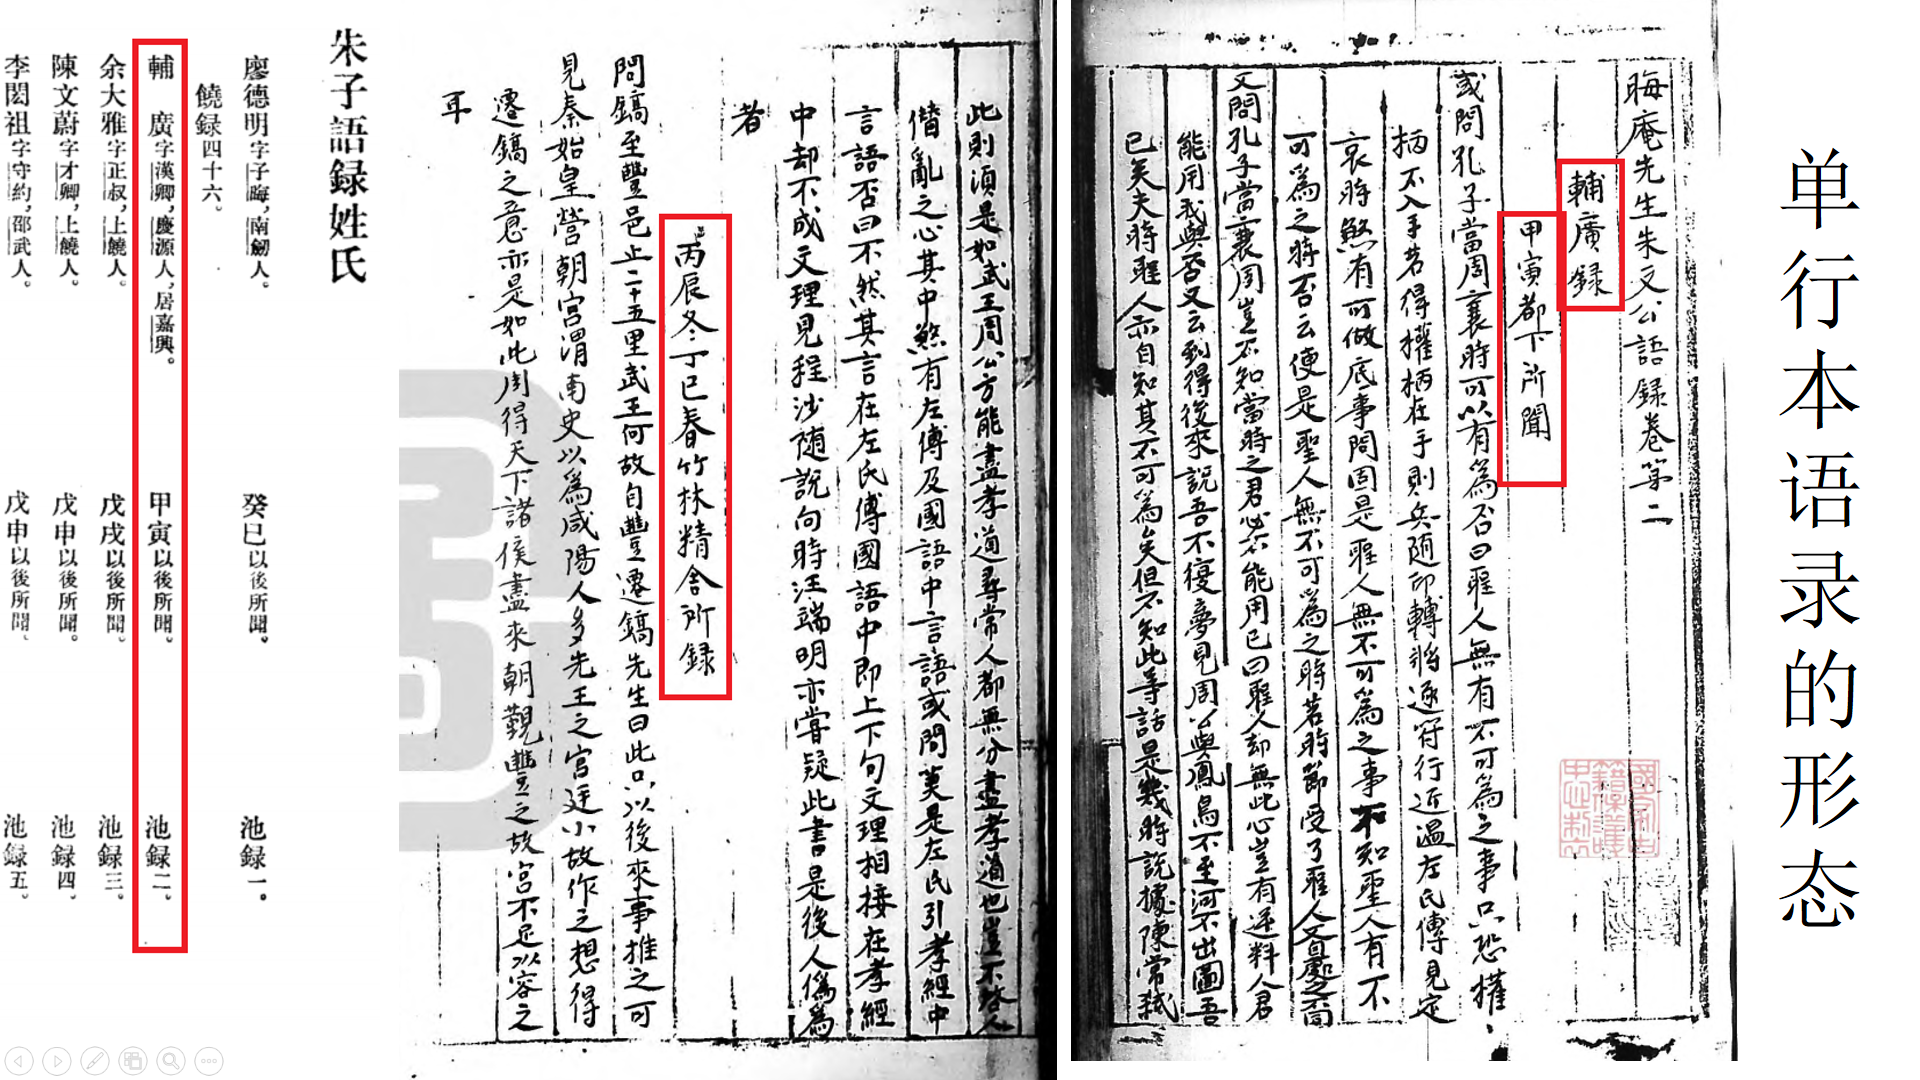 单行本语录的形态
晦庵先生朱文公語録卷第二
輔廣録
甲寅都下所聞
或問孔子當周衰時可以有為否曰聖人無有不可為之事只恐權
柄不入手若得權柄在手則兵随印轉將逐符行近温左氏傳見定
哀時煞有可做底事問固是聖人無不可為之事和知聖人有不
可為之時否云便是聖人無不可為之時若時節受了聖人又處之不同
又問孔子當衰周豈不知當時之君必不能用已曰聖人却無此心豈有逆料人君
能用我與否又云到得後來說吾不復夢見周公與鳳鳥不至河不出圖吾
已矣夫時聖人亦自知其不可為矣但不知此等話是幾時説據陳常弑
此則須是如武王周公方能盡孝道尋常人都無分盡孝道也豈不啓人
僭亂之心其中煞有左傳及國語中言語或問莫是左氏引孝經中
言語否曰不然其言在左氏傳國語中即上下句文理相接在孝經
中却不成文理見程沙随説向時汪端明亦嘗疑此書是後人偽為
者
丙辰冬丁巳春竹林精舍所録
問鎬至豐邑止二十五里武王何故自豐遷鎬先生曰此只以後來事推之可
見秦始皇營朝宮渭南史以為咸陽人多先王之宮廷小故作之想得
遷鎬之意亦是如此周得天下諸侯盡來朝覲豐之故宮不足以容之
耳
朱子語録姓氏
廖德明字子晦,南劒人。 癸巳以後所聞。 池録一。
饒録四十六。
輔 廣字漢卿,慶源人,居嘉興。 甲寅以後所聞。 池録二。
余大雅字正叔,上饒人。 戊戌以後所聞。 池録三。
陳文蔚字才卿,上饒人。 戊申以後所聞。 池録四。
李閎祖字守約,邵武人。 戊申以後所聞。 池録五。